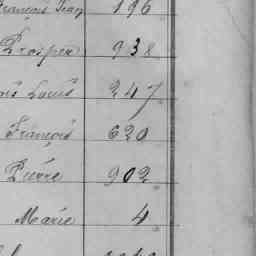 François Jean 196
Prosper 938
Louis 247
François 620
Pierre 902
Marie 4